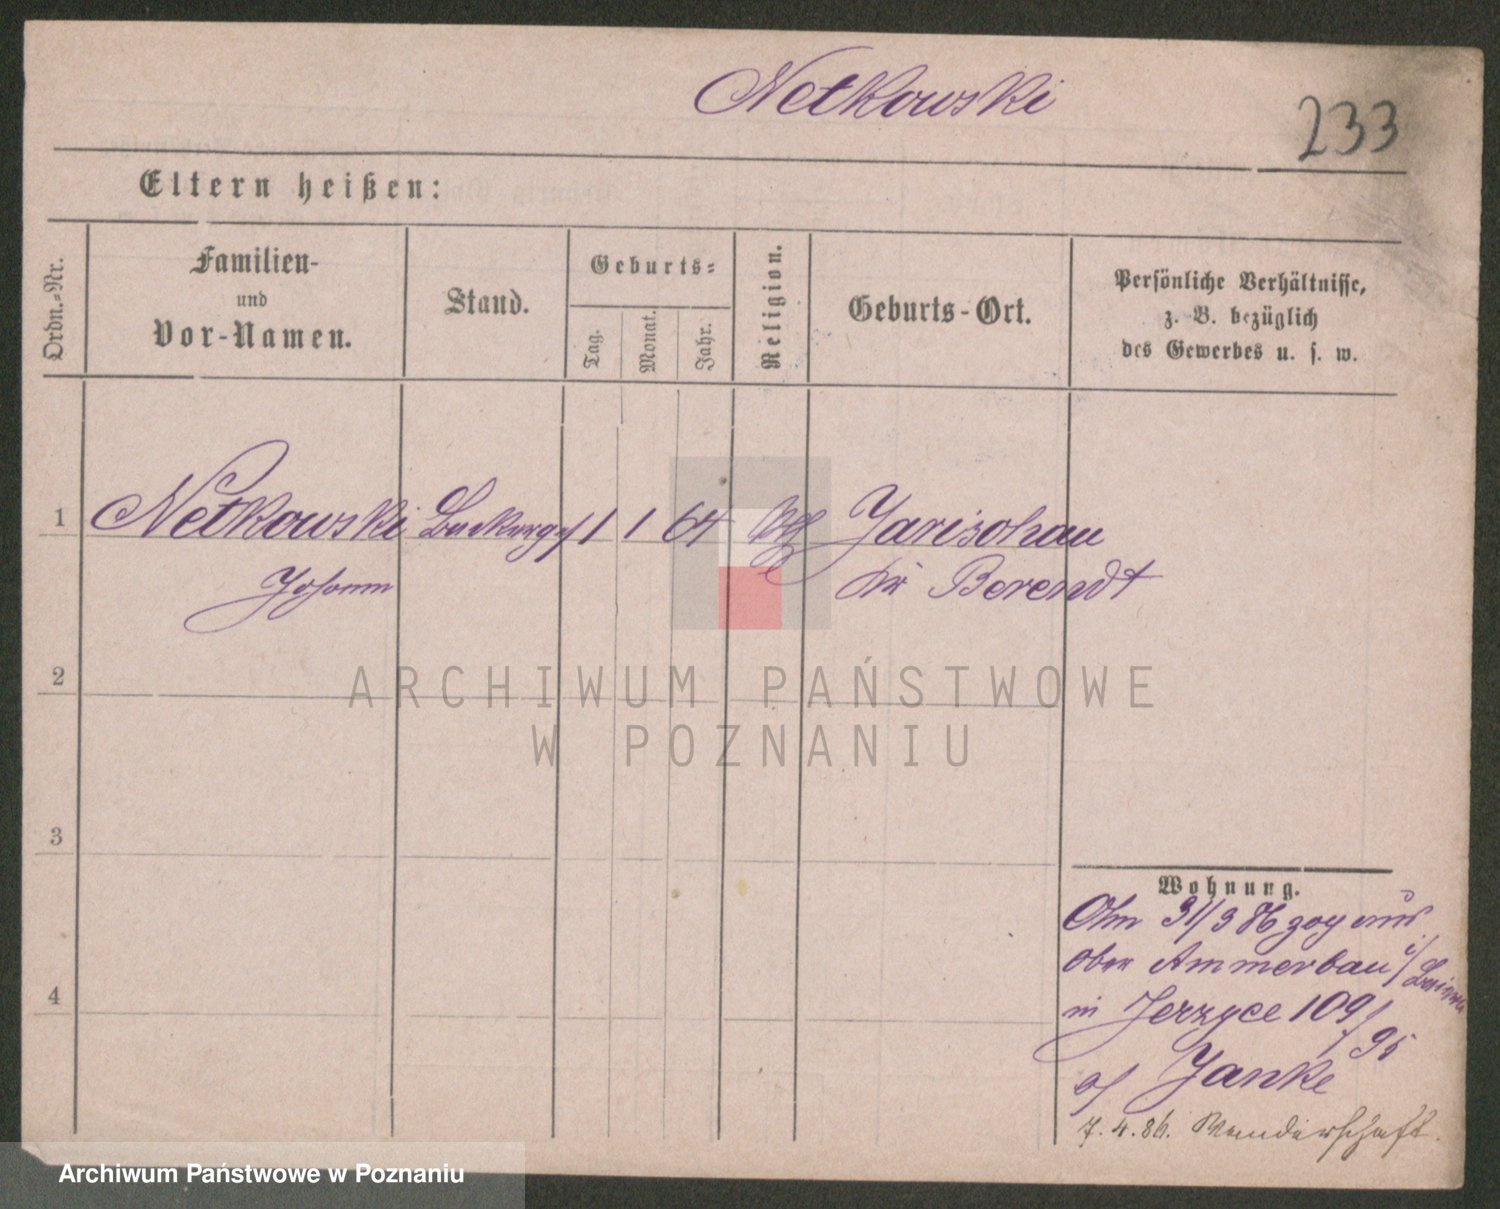 Netkowski
233
Eltern heißen:
Ordn.-Nr.
Familien-
und
Vor-Namen.
Stand.
Geburts-
Tag.
Monat.
Jahr.
Religion.
Geburts-Ort.
Persönliche Verhältnisse,
z. B. bezüglich
des Gewerbes u. s. w.
1 Netkowski 1 1 64 kth Jarischau
Johann Kr Berendt
2
ARCHIWUM PAŃSTWOWE
W POZNANIU
3
4
Wohnung.
Am 31/3 86 zog aus
Ober Ammerbau
in Jerzyce 109/95
b/ Janke
7. 4. 86. Wanderschaft.
Archiwum Państwowe w Poznaniu